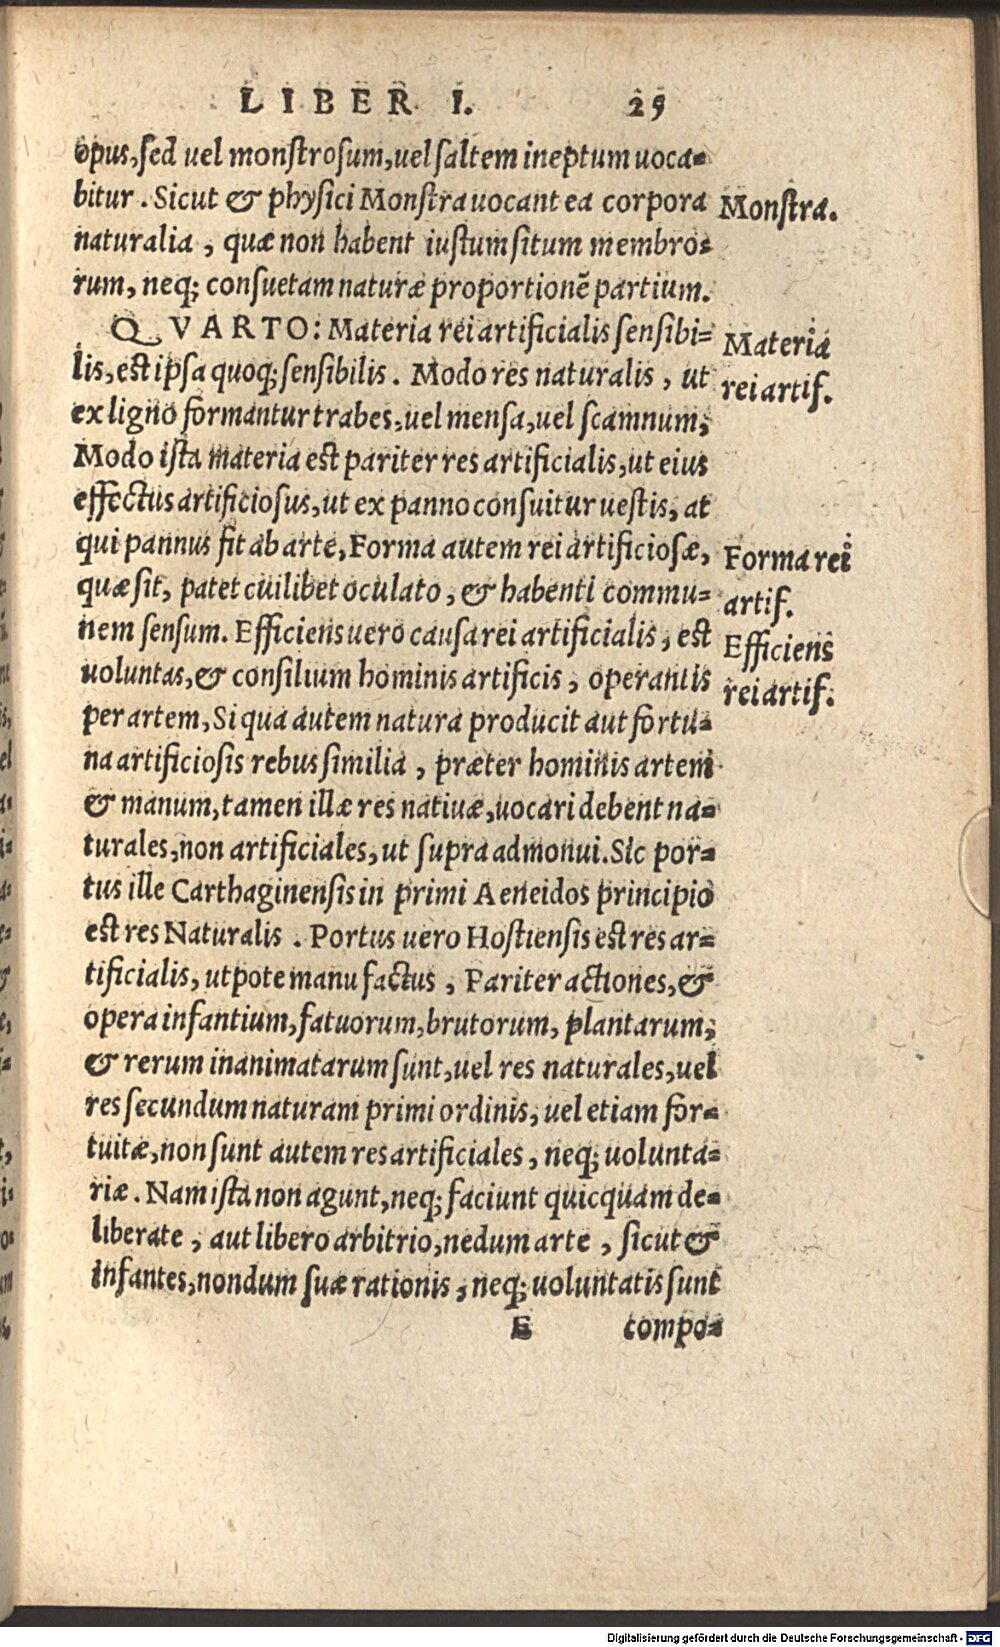 LIBER I. 25
opus, sed uel monstrosum, uel saltem ineptum uoca-
bitur. Sicut & physici Monstra uocant ea corpora
Monstra.
naturalia, quæ non habent iustum situm membro-
rum, neq; consuetam naturæ proportionẽ partium.
QVARTO: Materia rei artificialis sensibi-
Materia
lis, est ipsa quoq; sensibilis. Modo res naturalis, ut
rei artif.
ex ligno formantur trabes, uel mensa, uel scamnum,
Modo ista materia est pariter res artificialis, ut eius
effectus artificiosus, ut ex panno consuitur uestis, at
qui pannus fit ab arte, Forma autem rei artificiosæ,
Forma rei
quæ sit, patet cuilibet oculato, & habenti commu-
artif.
nem sensum. Efficiens uero causa rei artificialis, est
Efficiens
uoluntas, & consilium hominis artificis, operantis
rei artif.
per artem, Si qua autem natura producit aut fortu-
na artificiosis rebus similia, præter hominis artem
& manum, tamen illæ res natiuæ, uocari debent na-
turales, non artificiales, ut supra admonui. Sic por-
tus ille Carthaginensis in primi Aeneidos principio
est res Naturalis. Portus uero Hostiensis est res ar-
tificialis, utpote manu factus, Pariter actiones, &
opera infantium, fatuorum, brutorum, plantarum,
& rerum inanimatarum sunt, uel res naturales, uel
res secundum naturam primi ordinis, uel etiam for-
tuitæ, non sunt autem res artificiales, neq; uolunta-
riæ. Nam ista non agunt, neq; faciunt quicquam de-
liberate, aut libero arbitrio, nedum arte, sicut &
infantes, nondum suæ rationis, neq; uoluntatis sunt
E compo-
Digitalisierung gefördert durch die Deutsche Forschungsgemeinschaft - DFG